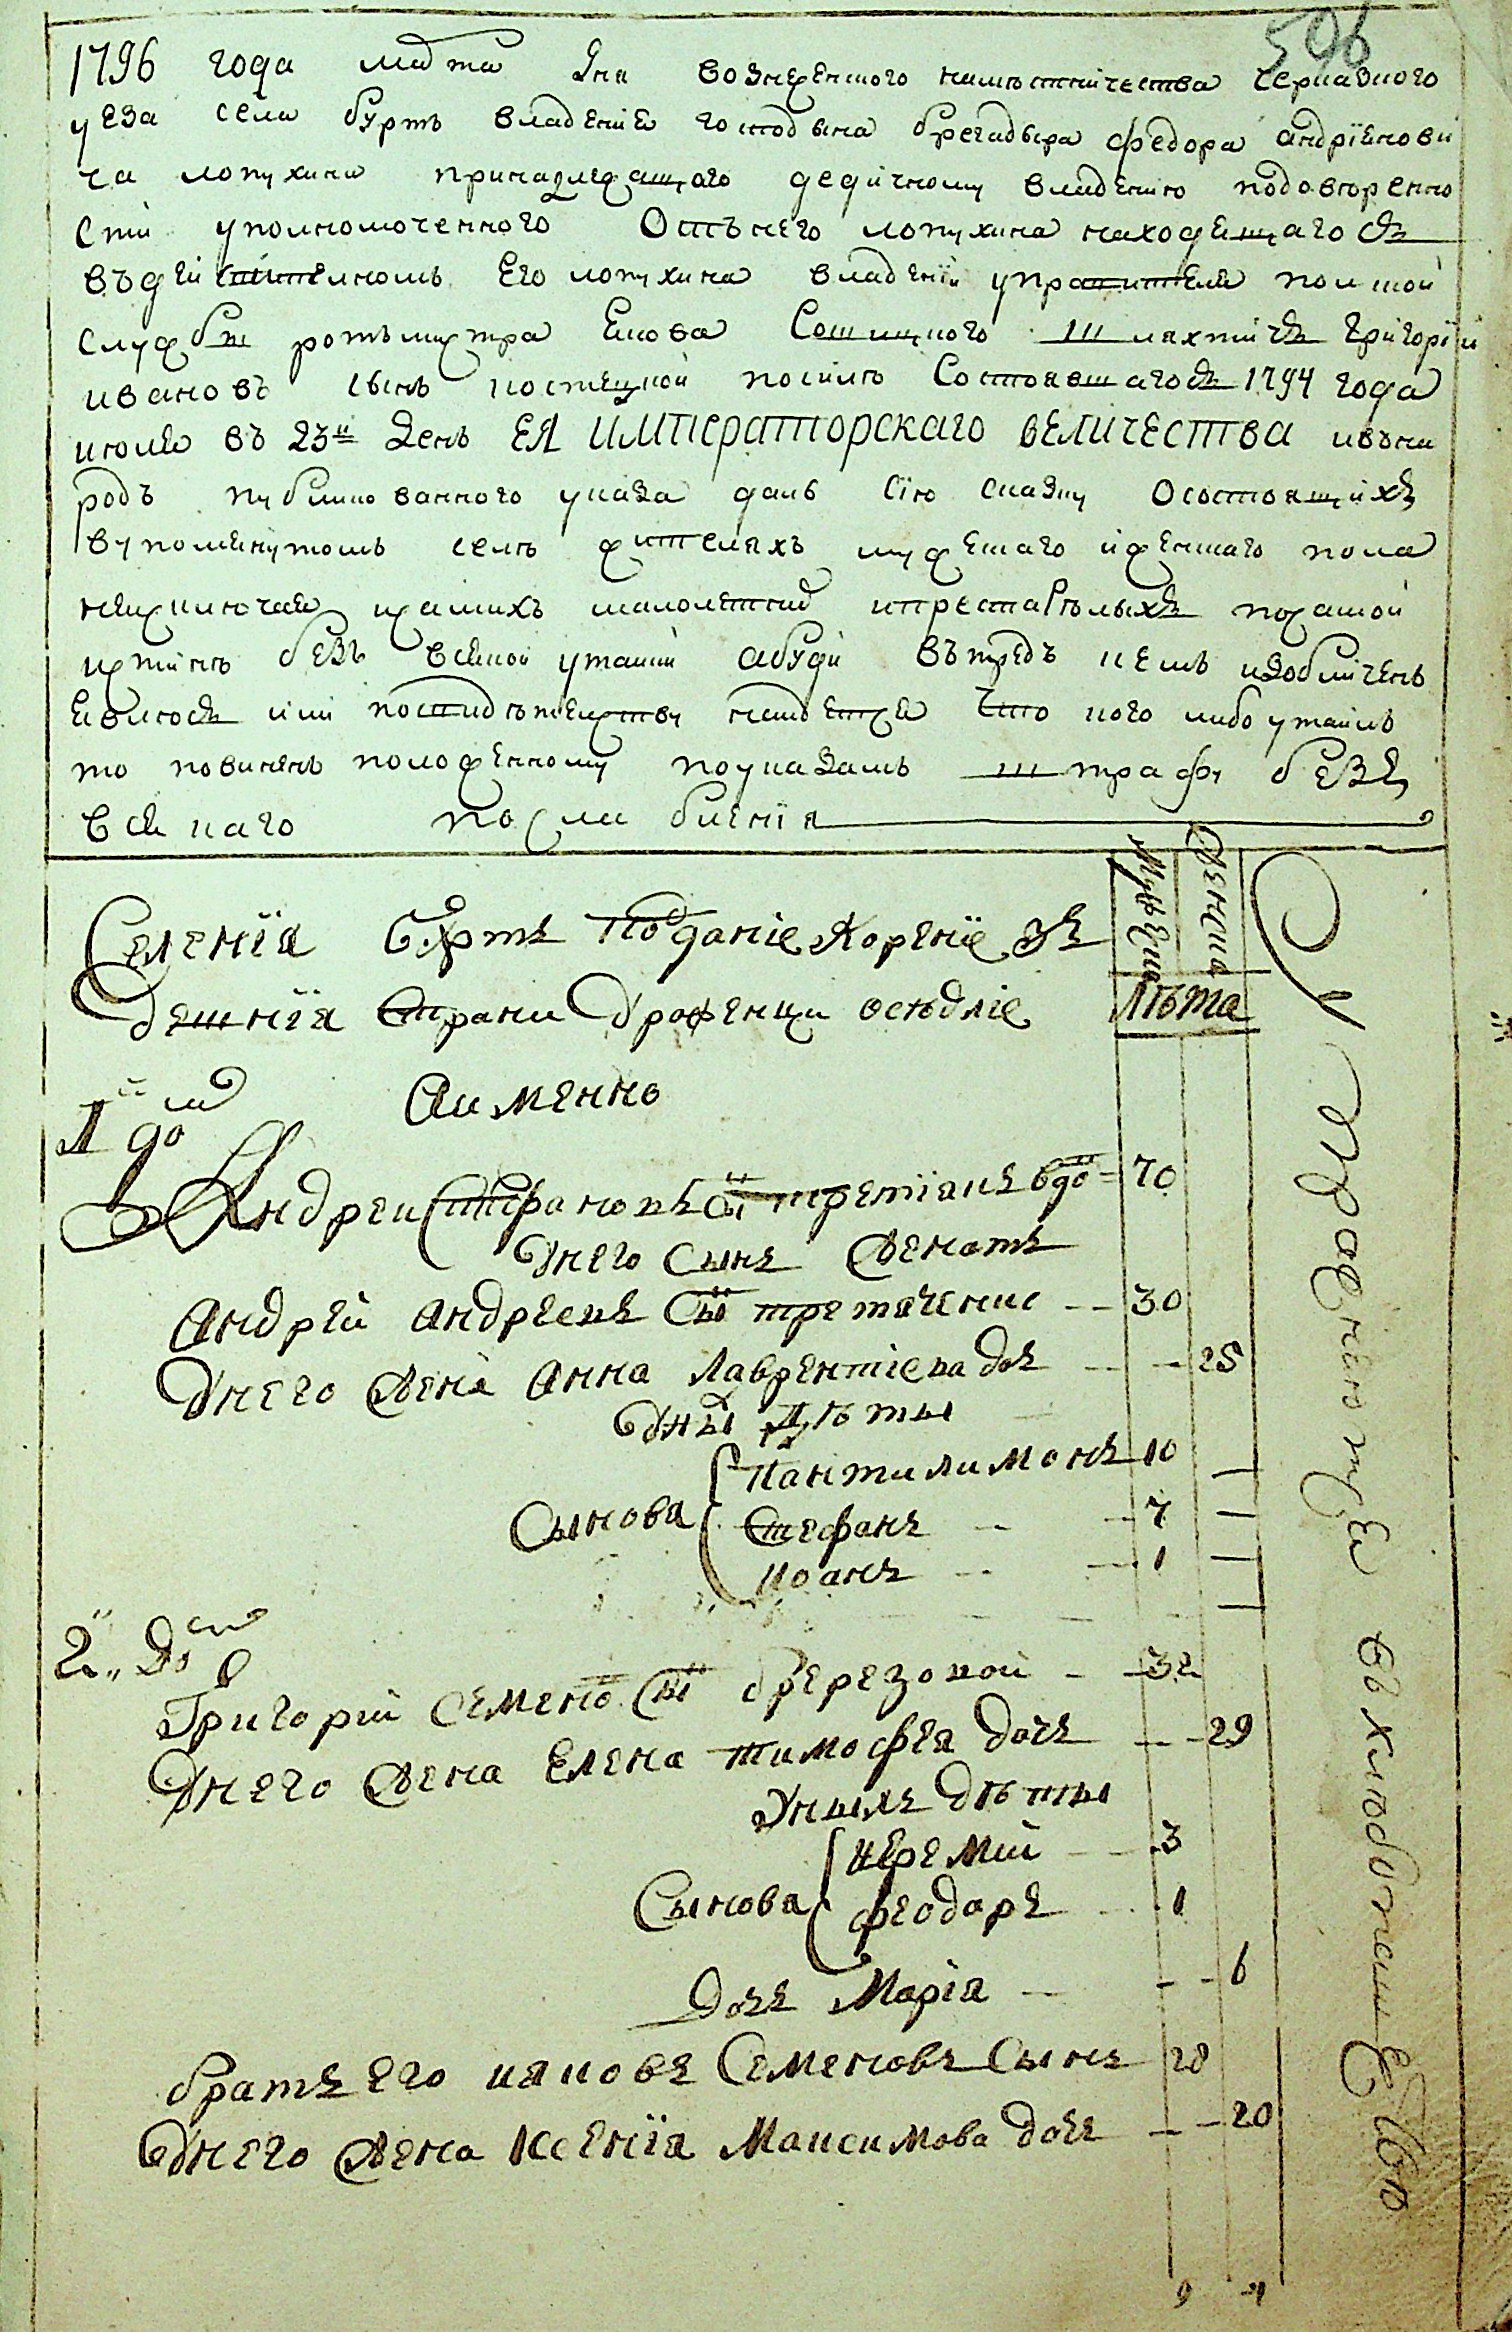 596
1796 года марта дня вознесенского наместничества Черказкого
уезда села буртъ владения господина брегадыра федора андрїянови
ча лопухина принадлежащаго дедичному владению подоверенно
сти уполномоченного Отънего лопухина находящагося
въдействителномъ Его лопухина владенїи управителя полской
службы ротъмистра Якова Сотицкого шляхтичъ Григорїй
ивановъ сынъ посилѣ Состоявшагося 1794 года
июня въ 23й день ЕЯ ИМПЕРАТОРСКАГО ВЕЛИЧЕСТВА ивъна
родъ публикованного указа далъ сїю скаску Осостоящихъ
вупомянутомъ селѣ жителяхъ мужескаго иженскаго пола
неисключая исамихъ малолетнихъ ипрестарѣлыхъ посамой
истинѣ безъ всякой утайки абуди въпредъ кемъ изобличенъ
явлюся или посвидѣтелству найдется Что кого либо утаилъ
то повиненъ положенному поуказамъ штрафу безъ
всякаго послабленїя
Селенїя Буртъ Подданїе Коренїе зъ
дешнїя Страни Уроженци оседлїе
Мужеска
Женска
Лѣта
Аименно
1й домъ
Андреи Стефановъ сы третїакъ вдо 70
Унего Сынъ Женатъ
Андрей Андреевъ Сы третяченко 30
Унего Жена Анна Лаврентїева дочъ 25
Уних Дѣты
Сынова
Пантилимонъ 10
Стефанъ 7
Иванъ 1
2й Домъ
Григорий Семено Сы березовой 32
Унего Жена Елена тимофея дочъ 29
Унихъ дѣты
Сынова
Иеремий 3
феодоръ 1
Дочъ Марїя 6
братъ его яковъ Семеновъ Сынъ 28
Унего Жена Ксенїя Максимова дочъ 20